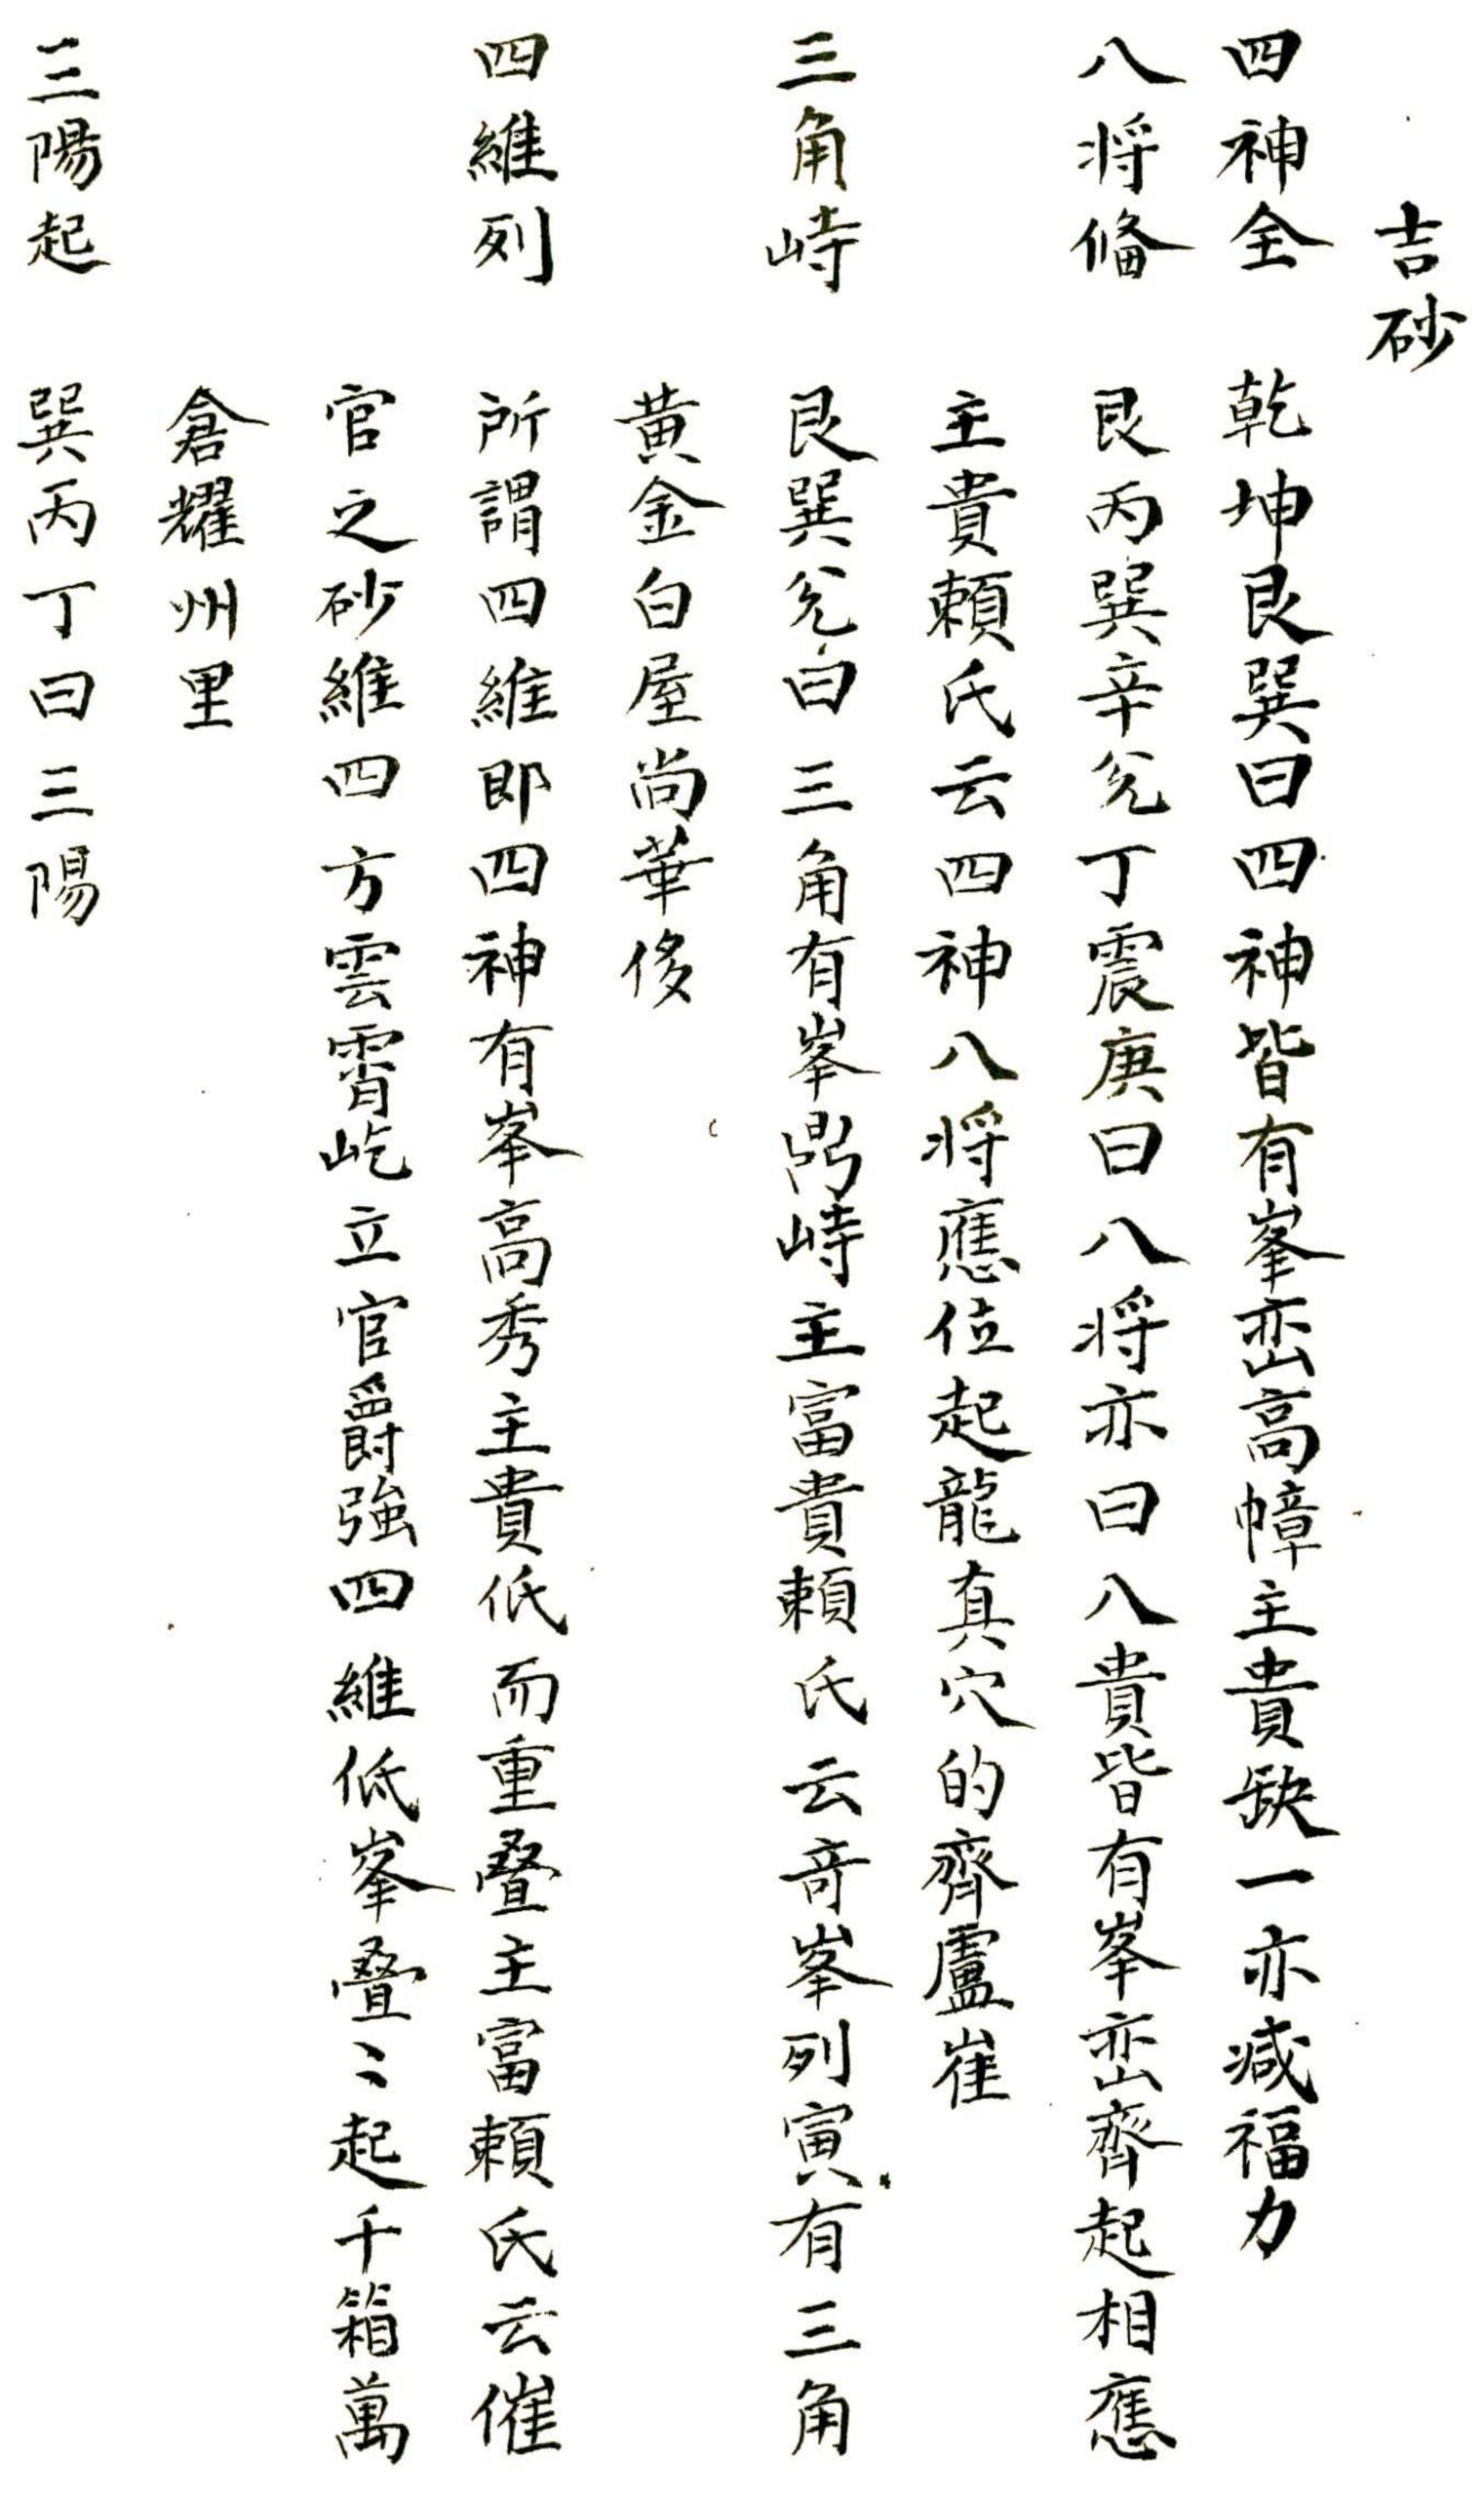 吉砂
四神全　乾坤艮巽曰四神皆有峯巒高幛主貴缺一亦减福力
八将俻　艮丙巽辛兊丁震庚曰八将亦曰八貴皆有峯巒齊起相應
主貴頼氏云四神八将應位起龍真穴的齊盧崔
三角峙　艮巽兊曰三角有峯鼎峙主富貴頼氏云奇峯列寅有三角
黄金白屋尚華侈
四維列　所謂四維即四神有峯高秀主貴低而重叠主富頼氏云催
官之砂維四方雲霄屹立官爵強四維低峯叠〻起千箱萬
倉耀州里
三陽起　巽丙丁曰三陽